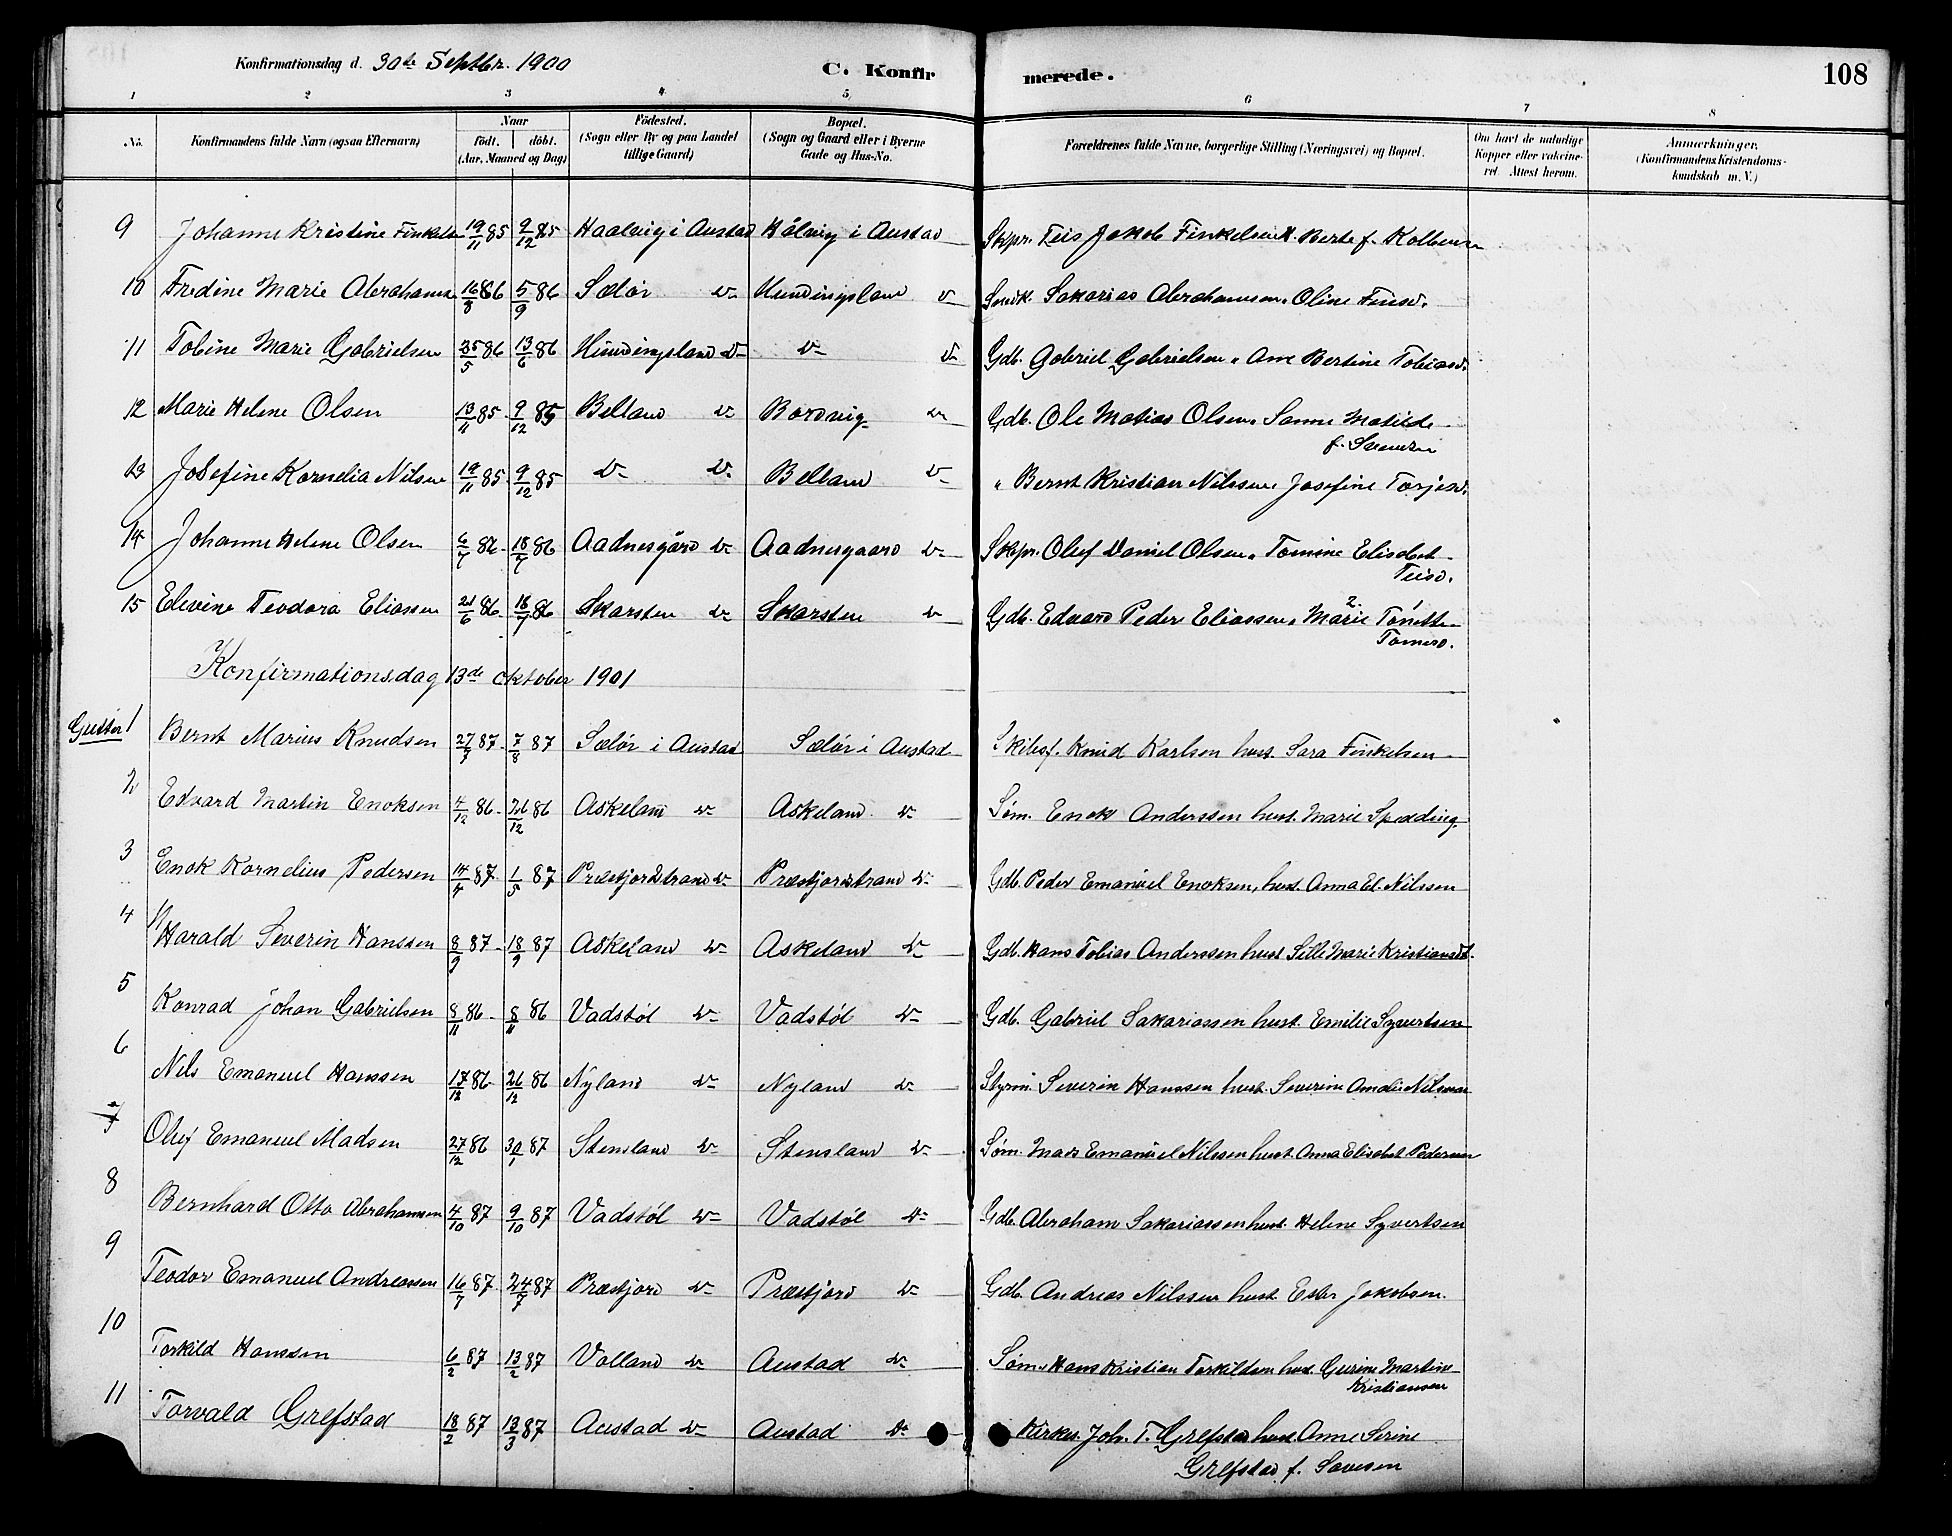 Konfirmationsdag d. 30de Septbr. 1900 C. Konfirmerede. 108
1 2 3 4 5 6 7 8
No. Konfirmandens fulde Navn (ogsaa Efternavn) Naar födt. döbt. (Aar, Maaned og Dag) Födested. (Sogn eller By og paa Landet tillige Gaard) Bopæl. (Sogn og Gaard eller i Byerne Gade og Hus-No. Forældrenes fulde Navne, borgerlige Stilling (Næringsvei) og Bopæl. Om havt de naturlige Kopper eller vakcineret. Attest herom. Anmærkninger. (Konfirmandens Kristendomskundskab m. V.)
9 Johanne Kristine Finkelsen 19/11 85 9/12 85 Haalvig i Austad Hålvig i Austad Skpr. Teis Jakob Finkelsen Berte f. Kolbensen
10 Fredine Marie Abrahamsen 16/8 86 5/9 86 Sælör do Hundingsland do Snedk. Sakarias Abrahamsen " Oline Finsd.
11 Tobine Marie Gabrielsen 25/5 86 13/6 86 Hundingsland do do do Gdb. Gabriel Gabrielsen " Ane Bertine Tobiasd.
12 Marie Helene Olsen 13/11 85 9/12 85 Belland do Bordvig do Gdb. Ole Matias Olsen " Sanne Matilde
f. Svensen
13 Josefine Kornelia Nilsen 19/11 85 9/12 85 do do Belland do " Bernt Kristian Nilssen " Josefine Torjesd.
14 Johanne Helene Olsen 6/7 86 18/7 86 Aadnesgård do Aadnesgaard do Skpr. Oluf Daniel Olsen " Tomine Elisabet
Teisd.
15 Elevine Teodora Eliassen 21/6 86 18/7 86 Skarsten do Skarsten do Gdb. Edvard Peder Eliassen " Marie Tonette
Tomesd.
Konfirmationsdag 13de oktober 1901
Gutter 1 Bernt Marius Knudsen 27/7 87 7/8 87 Sælör i Austad Sælör i Austad Skibsf. Knud Karlsen hust. Sara Finkelsen
2 Edvard Martin Enoksen 4/12 86 26/12 86 Askeland do Askeland do Søm. Enok Anderssen hust. Marie Spedding
3 Enok Kornelius Pedersen 14/4 87 1/5 87 Præstjordstrand do Præstjordstrand do Gdb. Peder Emanuel Enoksen, hust. Anna El. Nilssen
4 Harald Severin Hanssen 8/9 87 18/9 87 Askeland do Askeland do Gdb. Hans Tobias Anderssen hust Sille Marie Kristiansdt.
5 Konrad Johan Gabrielsen 8/11 86 8/11 86 Vadstöl do Vadstöl do Gdb. Gabriel Sakariassen hust. Emilie Syvertsen
6 Nils Emanuel Hanssen 17/12 86 26/12 86 Nyland do Nyland do Styrm. Severin Hanssen hust. Severine Amalie Nilsen
7 Oluf Emanuel Madsen 27/12 86 30/1 87 Stensland do Stensland do Søm. Mads Emanuel Nilssen hust. Anna Elisabet Pedersen
8 Bernhard Otto Abrahamsen 4/10 87 9/10 87 Vadstöl do Vadstöl do Gdb. Abraham Sakariassen hust. Helene Syvertsen
9 Teodor Emanuel Andreassen 16/7 87 24/7 87 Præstjord do Præstjord do Gdb. Andreas Nilssen hust. Ester Jakobsen.
10 Torkild Hanssen 6/2 87 13/2 87 Valland do Austad do Søm. Hans Kristian Torkildsen hust. Gurine Martine
Kristiansen
11 Torvald Grefstad 18/2 87 13/3 87 Austad do Austad do Kirkes. Joh. T. Grefstad hust. Anne Serine
Grefstad f. Savesen